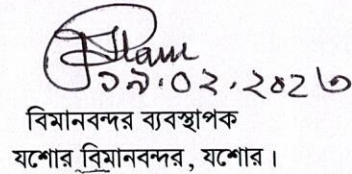 ১৯.০২.২০২৬
বিমানবন্দর ব্যবস্থাপক
যশোর বিমানবন্দর, যশোর।